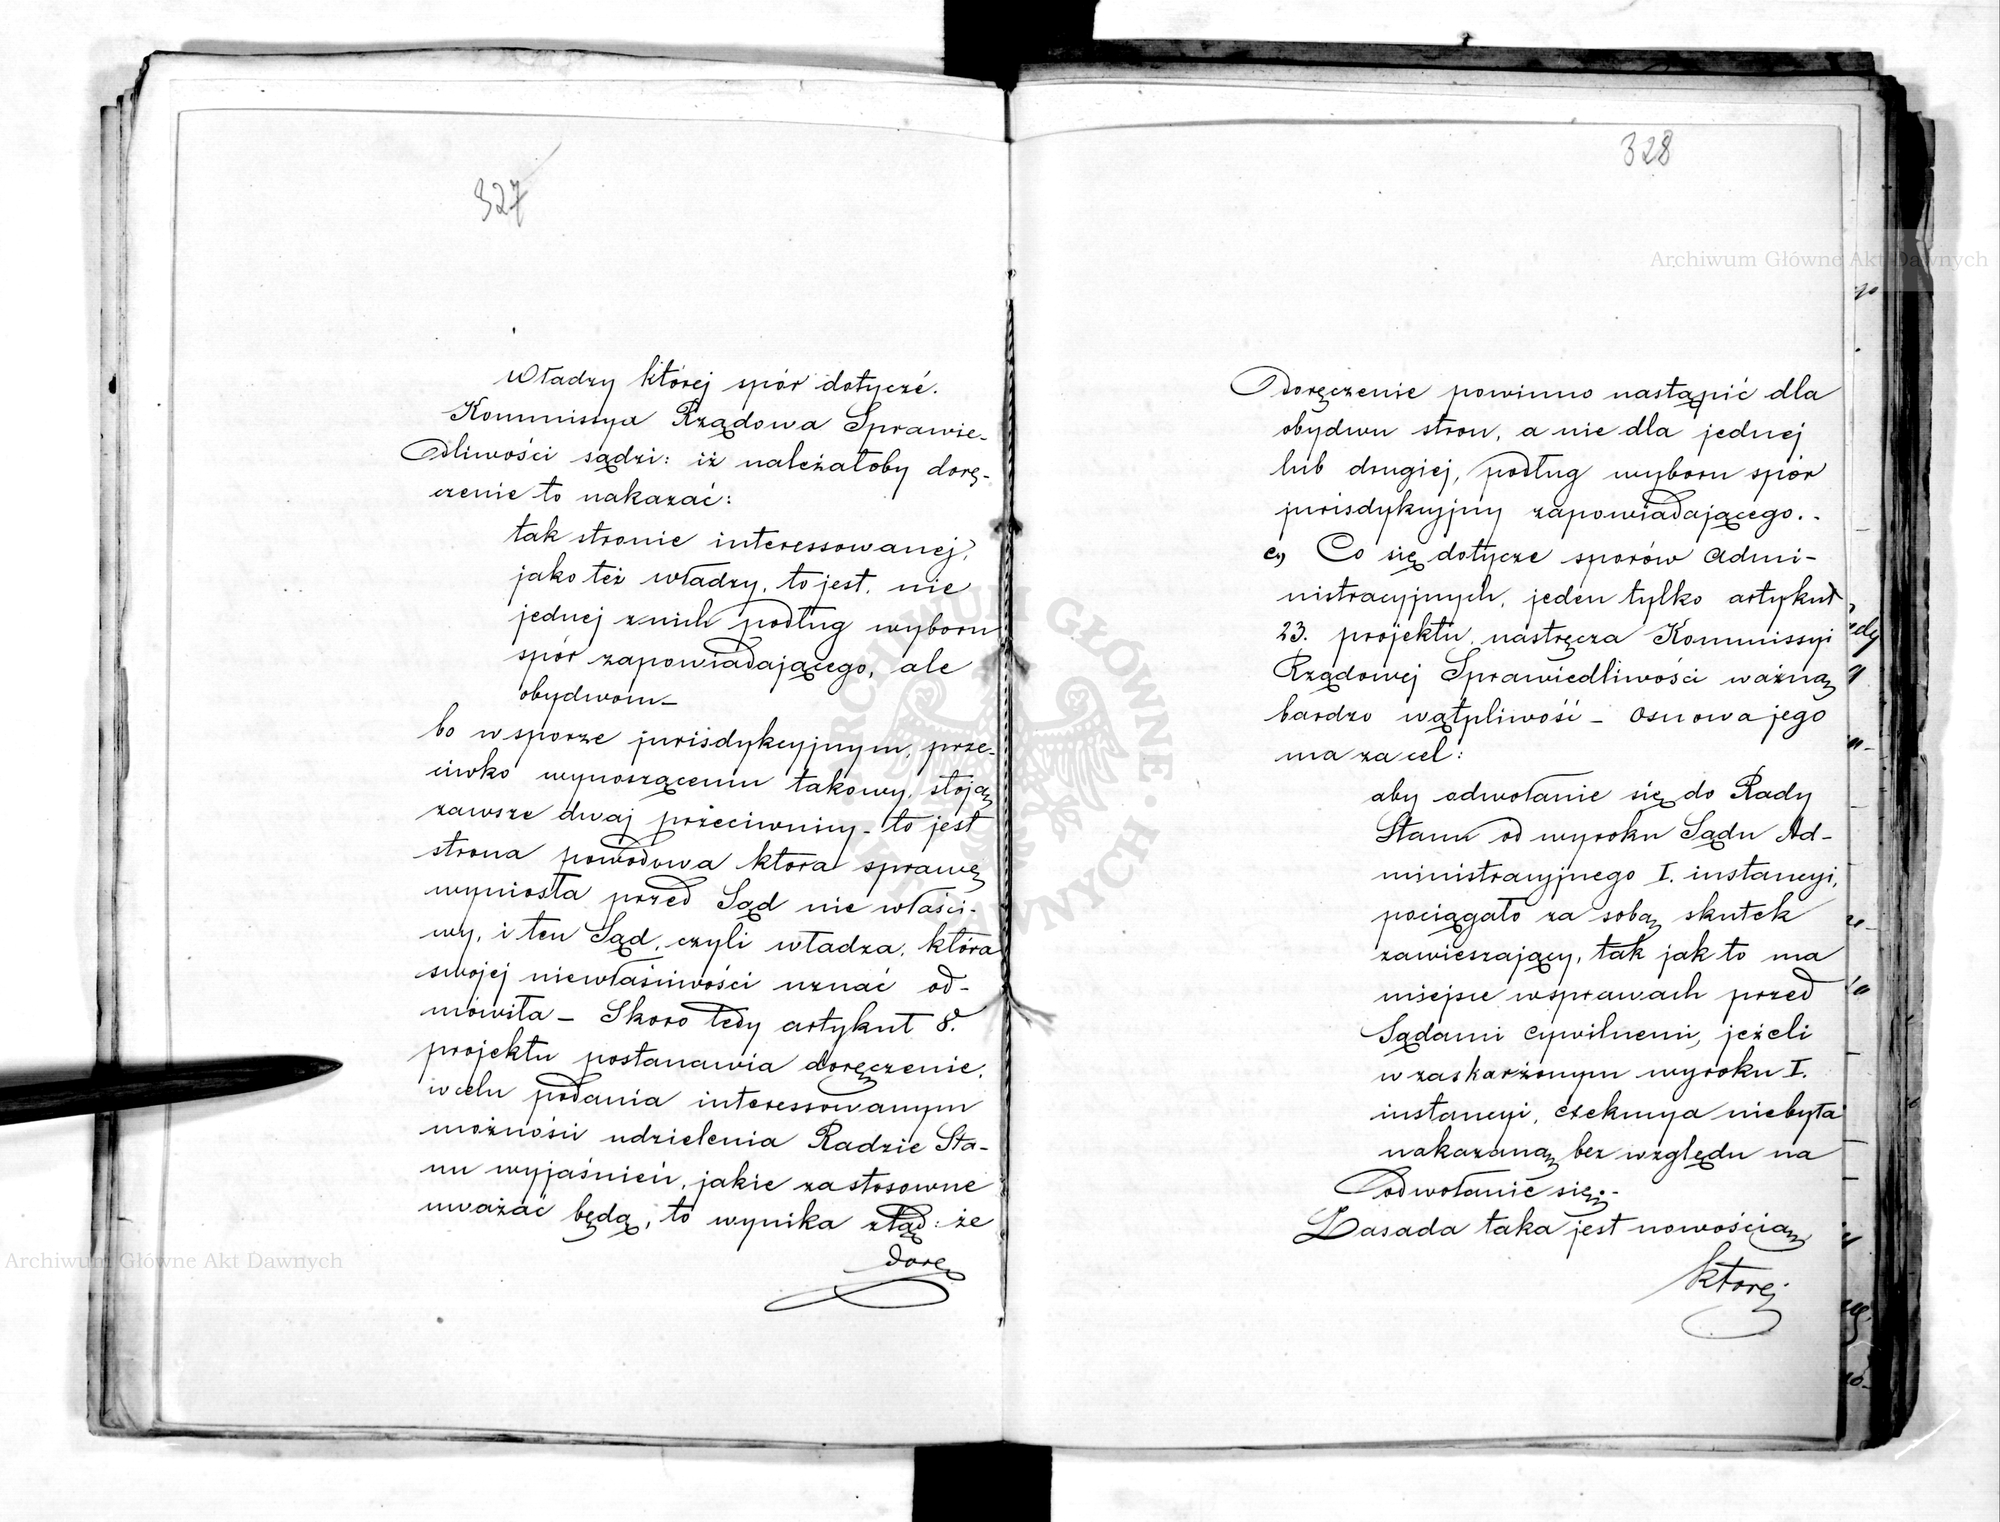 327
Władzy której spór dotyczé.
Kommissya Rządowa Sprawie-
dliwości sądzi: iż należałoby dorę-
czenie to nakazać:
tak stronie interessowanej,
jako też władzy, to jest, nie
jednej z nich podług wyboru
spór zapowiadającego, ale
obydwom_
bo w sporze jurisdykcyjnym, prze-
ciwko wynoszącemu takowy, stoją
zawsze dwaj przeciwnicy - to jest
strona powodowa która sprawę
wyniosła przed Sąd nie właści-
wy, i ten Sąd, czyli władza, która
swojej niewłaściwości uznać od-
mówiła _ Skoro tedy artykuł 8.
projektu postanawia doręczenie,
w celu podania interessowanym
możności udzielenia Radzie Sta-
nu wyjaśnień, jakie za stosowne
uważać będą, to wynika ztąd: że
dorę
328
Doręczenie powinno nastąpić dla
obydwu stron, a nie dla jednej
lub drugiej, podług wyboru spór
jurisdykcyjny zapowiadającego._
c, Co się dotycze sporów admi-
nistracyjnych, jeden tylko artykuł
23. projektu, nastręcza Kommissyi
Rządowej Sprawiedliwości ważną
bardzo wątpliwość _ osnowa jego
ma za cel:
aby odwołanie się do Rady
Stanu od wyroku Sądu Ad-
ministracyjnego I. instancyi,
pociągało za sobą skutek
zawieszający, tak jak to ma
miejsce w sprawach przed
Sądami cywilnemi, jeżeli
w zaskarżonym wyroku I.
instancyi, exekucya niebyła
nakazaną bez względu na
odwołanie się;-
Zasada taka jest nowością
której
Archiwum Główne Akt Dawnych
Archiwum Główne Akt Dawnych
ARCHIWUM GŁÓWNE AKT DAWNYCH